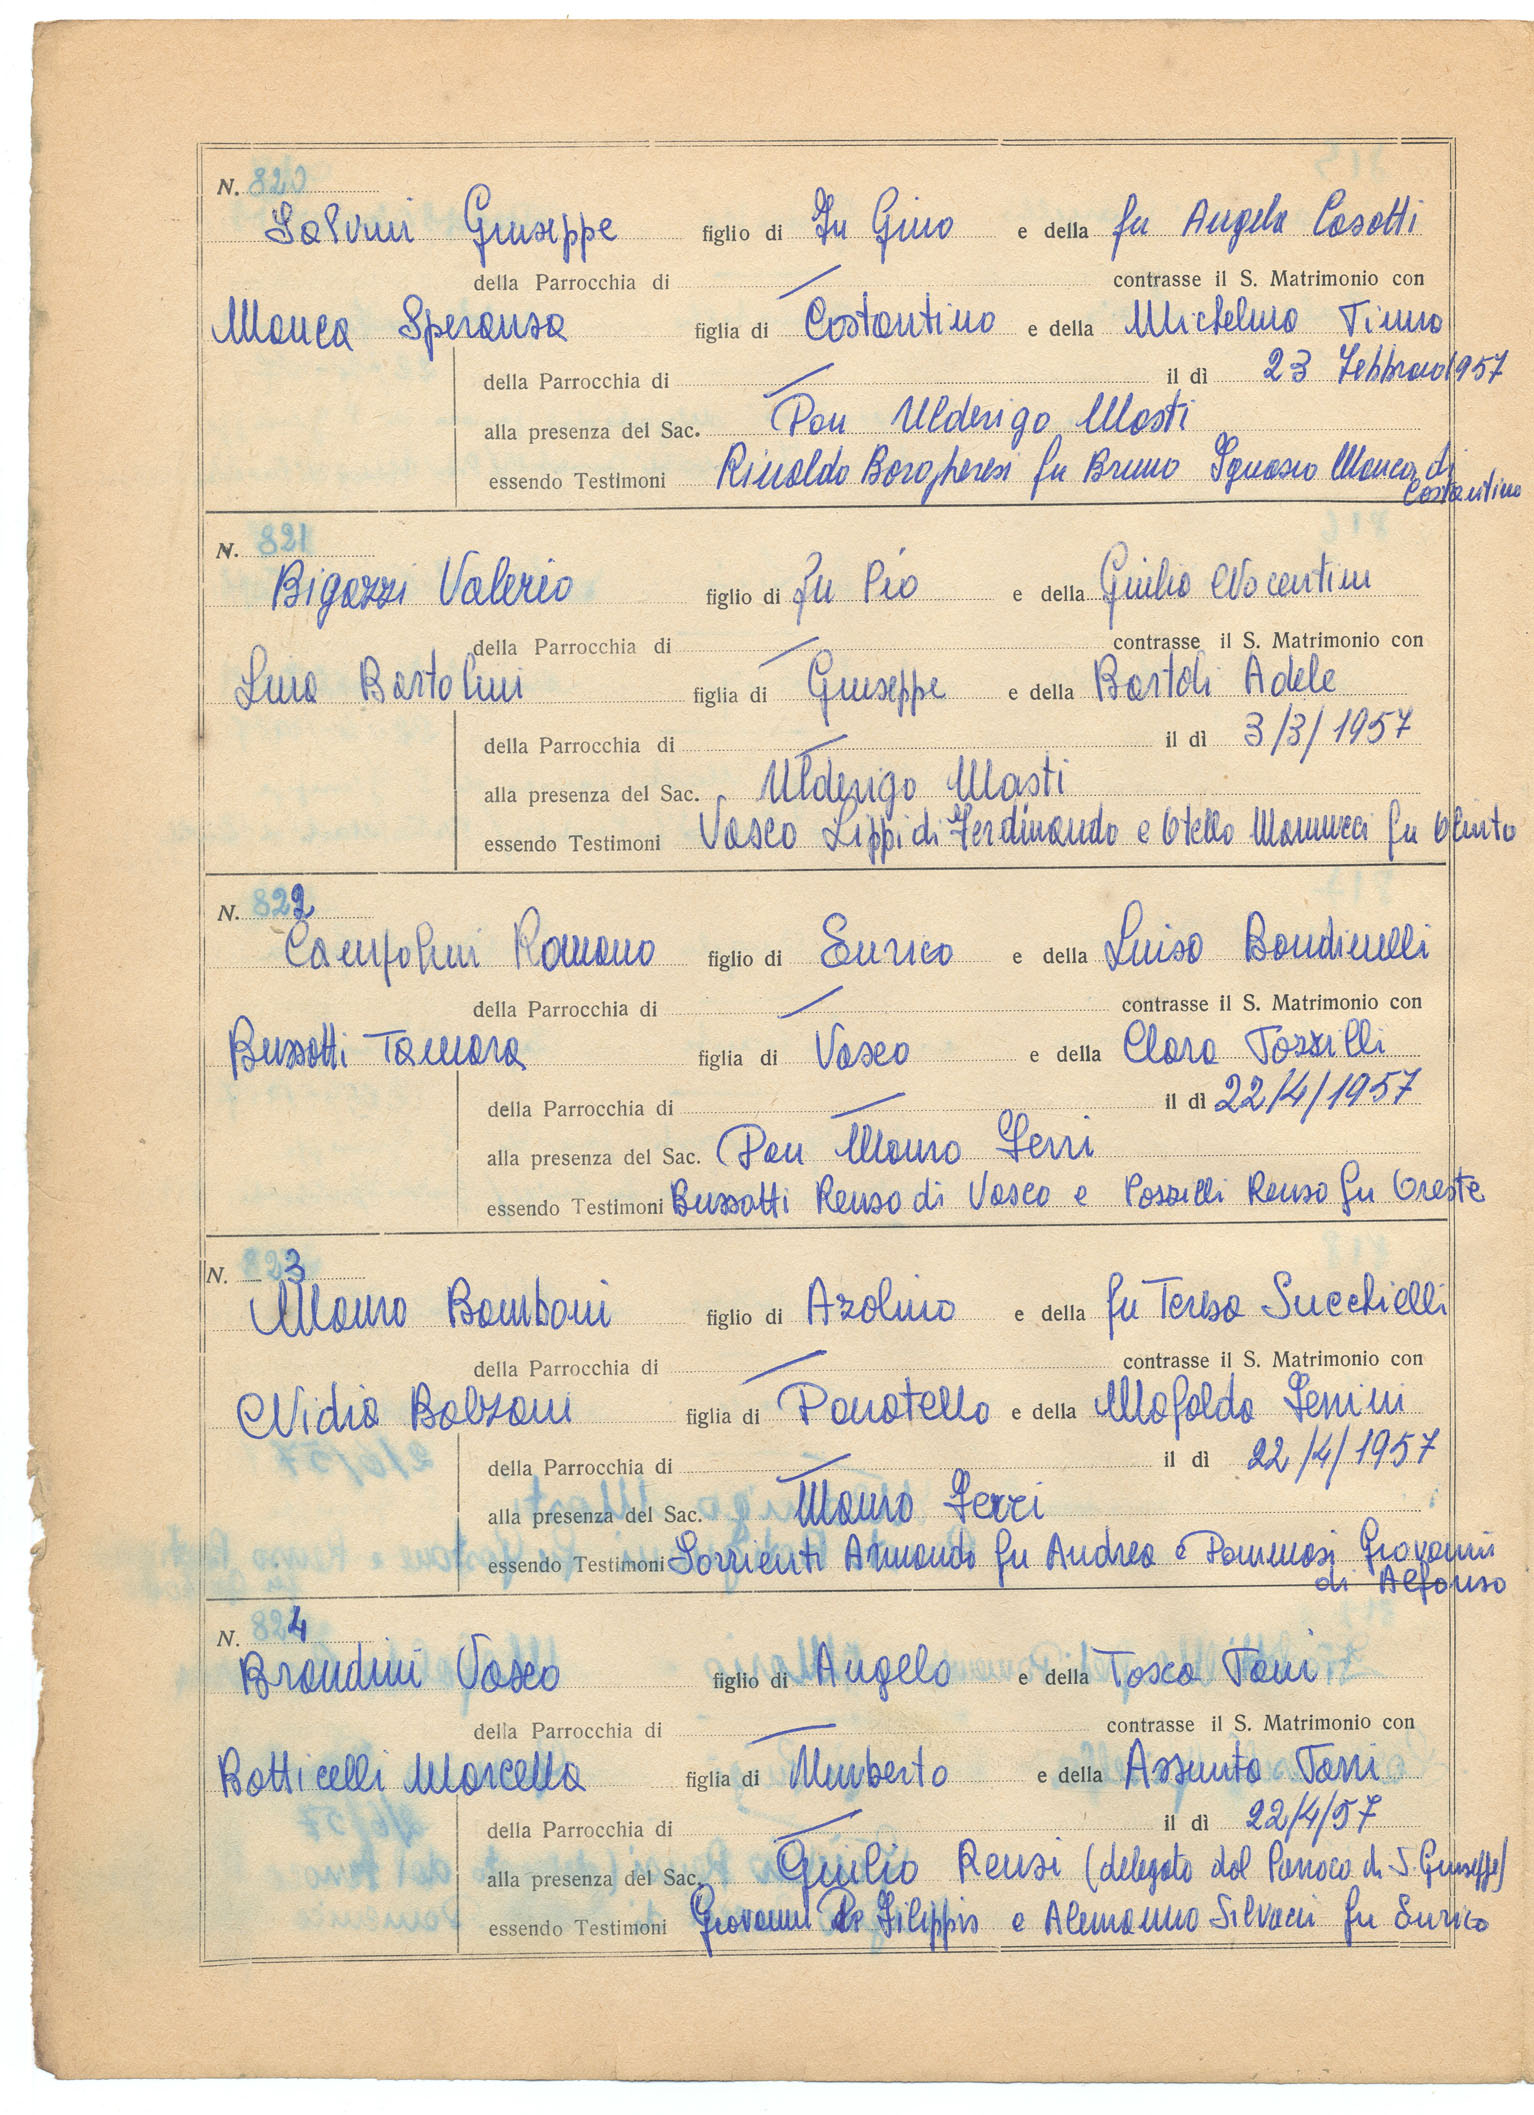 N. 820
Salvini Giuseppe figlio di fu Gino e della fu Angela Casotti
della Parrocchia di / contrasse il S. Matrimonio con
Manca Speranza figlia di Costantino e della Michelina Tinna
della Parrocchia di / il dì 23 Febbraio 1957
alla presenza del Sac. Don Ulderigo Masti
essendo Testimoni Rinaldo Borgheresi fu Bruno Ignazio Manca di
Costantino
N. 821
Bigazzi Valerio figlio di fu Pio e della Giulia Nocentini
della Parrocchia di / contrasse il S. Matrimonio con
Lina Bartolini figlia di Giuseppe e della Bartoli Adele
della Parrocchia di / il dì 3/3/1957
alla presenza del Sac. Ulderigo Masti
essendo Testimoni Vasco Lippi di Ferdinando e Otello Mannucci fu Olinto
N. 822
Campolmi Romano figlio di Enrico e della Luisa Bandinelli
della Parrocchia di / contrasse il S. Matrimonio con
Bussotti Tamara figlia di Vasco e della Clara Pozzilli
della Parrocchia di / il dì 22/4/1957
alla presenza del Sac. Don Mauro Ferri
essendo Testimoni Bussotti Renzo di Vasco e Pozzilli Renzo fu Oreste
N. 823
Mauro Bamboni figlio di Azolino e della fu Teresa Succhielli
della Parrocchia di / contrasse il S. Matrimonio con
Nidia Balzani figlia di Donatello e della Mafalda Ferrini
della Parrocchia di / il dì 22/4/1957
alla presenza del Sac. Mauro Ferri
essendo Testimoni Sorrienti Armando fu Andrea e Dammasi Giovanni
di Alfonso
N. 824
Brandini Vasco figlio di Angelo e della Tosca Tani
della Parrocchia di / contrasse il S. Matrimonio con
Botticelli Marcella figlia di Umberto e della Assunta Tarri
della Parrocchia di / il dì 22/4/57
alla presenza del Sac. Giulio Rensi (delegato dal Parroco di S. Giuseppe)
essendo Testimoni Giovanni De Filippis e Alemanno Silvani fu Enrico